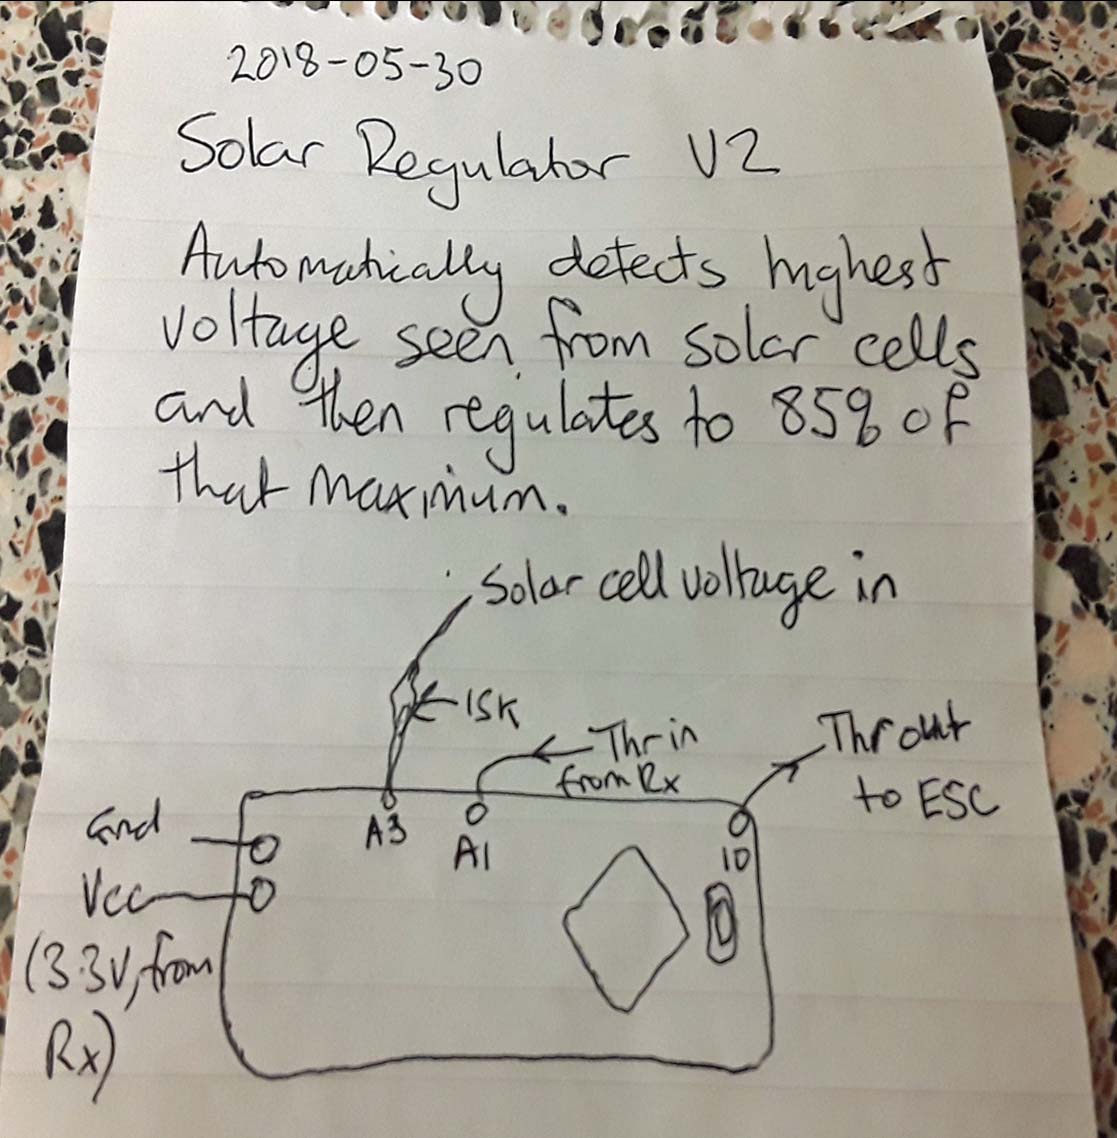 2018-05-30
Solar Regulator V2
Automatically detects highest
voltage seen from solar cells
and then regulates to 85% of
that maximum.
Solar cell voltage in
15K
Thr in
from Rx
Thr out
to ESC
Gnd
A3
A1
10
Vcc
(3.3V, from
Rx)